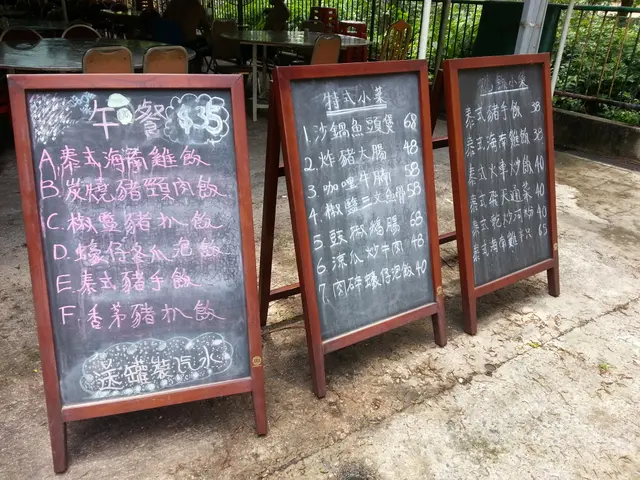 午餐 $35
A. 泰式海南雞飯
B. 炭燒豬頸肉飯
C. 椒鹽豬扒飯
D. 蠔仔冬瓜泡飯
E. 泰式豬手飯
F. 香茅豬扒飯
送罐裝汽水
特式小菜
1. 沙鍋魚頭煲 68
2. 炸豬大腸 48
3. 咖哩牛腩 58
4. 椒鹽三文魚骨 58
5. 豉椒 腸 68
6. 涼瓜炒牛肉 48
7. 肉碎蠔仔泡飯 40
小菜
泰式豬手飯 38
泰式海南雞飯 38
泰式 炒飯 40
泰式 通菜 40
泰式乾炒河粉 40
泰式海南雞半只